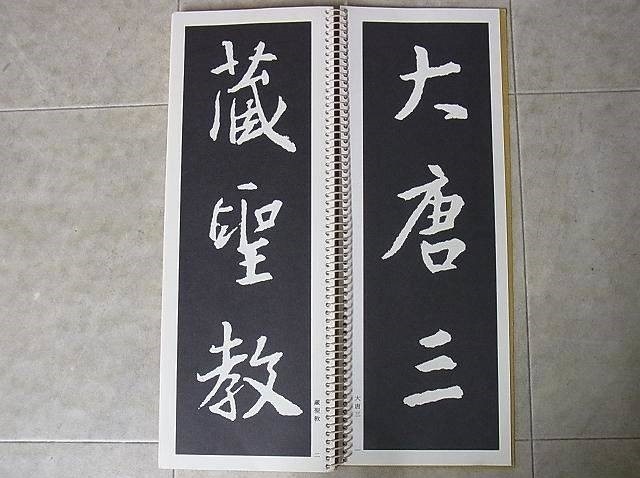 大唐三
藏聖教
大唐三
藏聖教
二